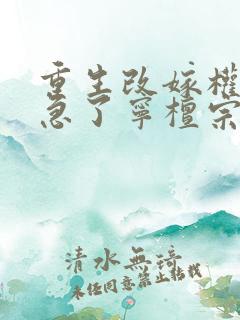 重生改嫁權
急了寧檀宗
清水無琦
未經同意禁止轉載